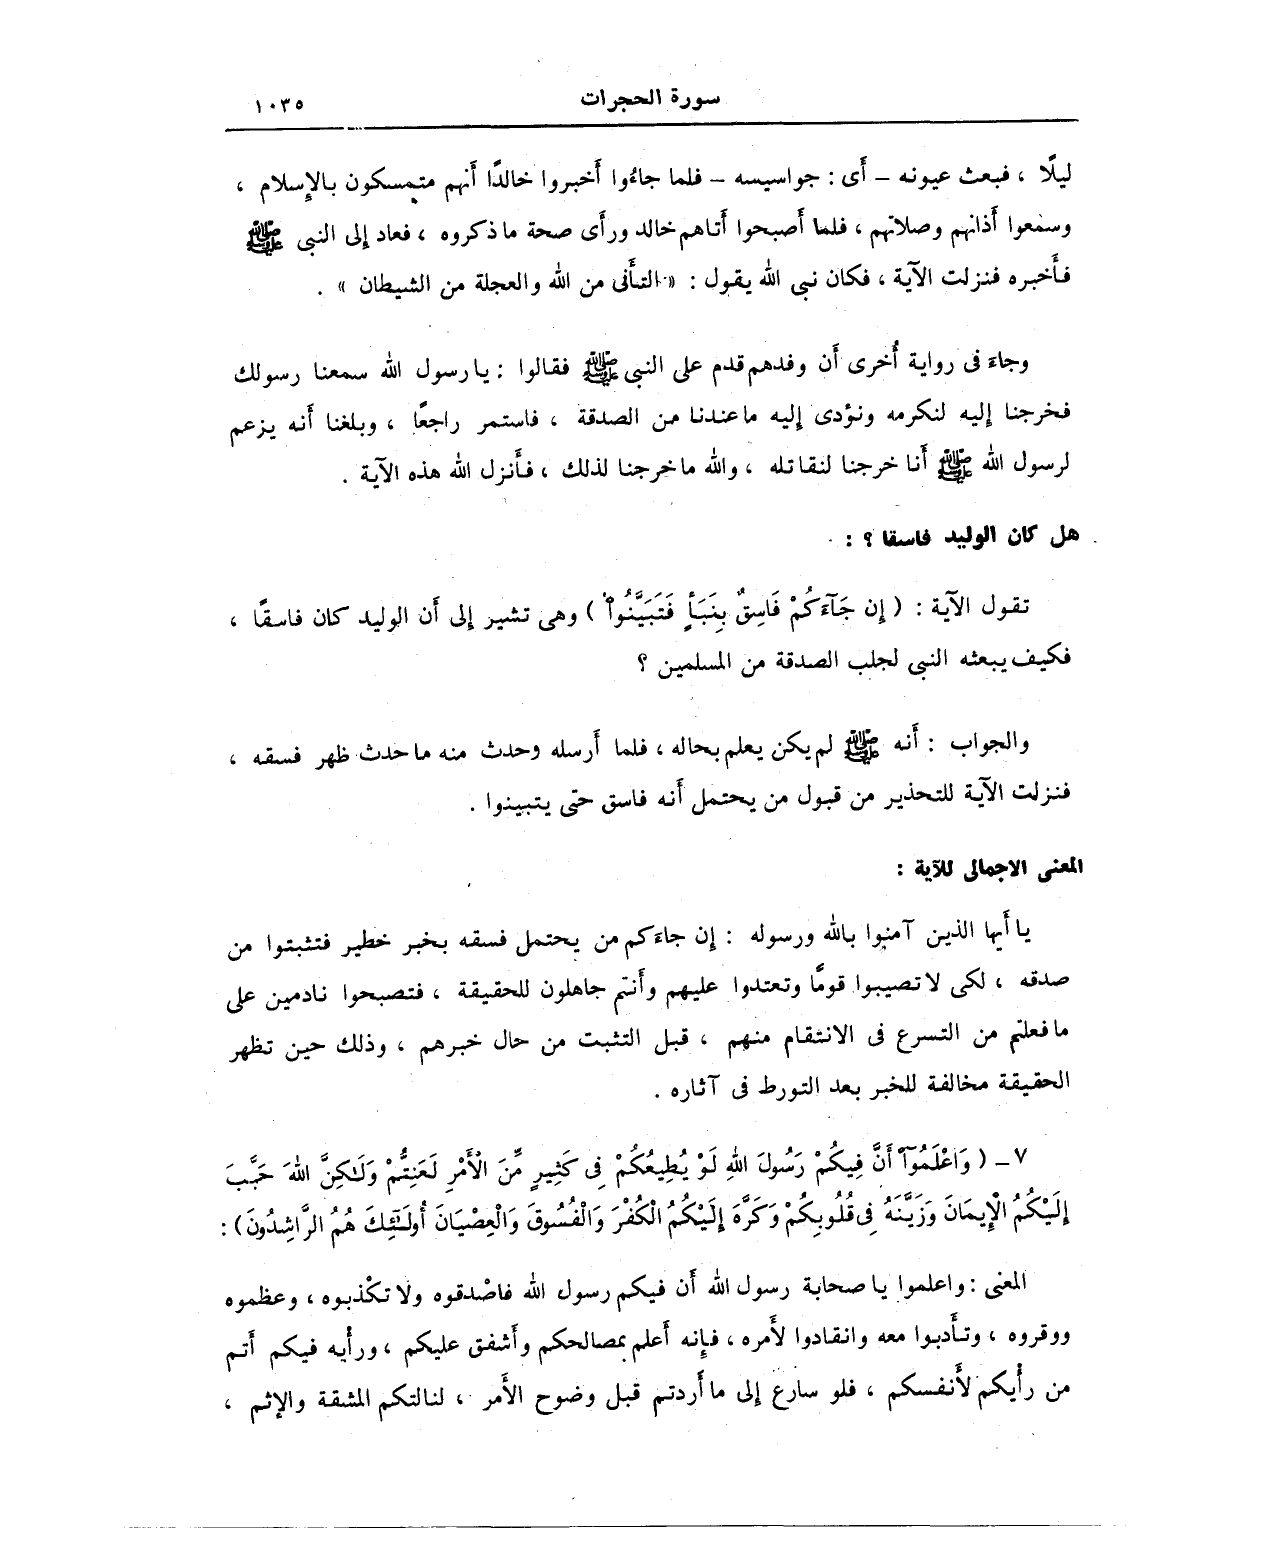 سورة الحجرات ١٠٣٥
ليلًا ، فبعث عيونه – أى : جواسيسه – فلما جاءُوا أَخبروا خالدًا أَنهم متمسكون بالإِسلام ،
وسمعوا أَذانهم وصلاتهم ، فلما أَصبحوا أَتاهم خالد ورأَى صحة ما ذكروه ، فعاد إِلى النبى ﷺ
فأَخبره فنزلت الآية ، فكان نبى الله يقول : « التأَنى من الله والعجلة من الشيطان » .
وجاءَ فى رواية أُخرى أَن وفدهم قدم على النبى ﷺ فقالوا : يا رسول الله سمعنا رسولك
فخرجنا إِليه لنكرمه ونؤدى إِليه ما عندنا من الصدقة ، فاستمر راجعًا ، وبلغنا أَنه يزعم
لرسول الله ﷺ أَنا خرجنا لنقاتله ، والله ما خرجنا لذلك ، فأَنزل الله هذه الآية .
هل كان الوليد فاسقا ؟ :
تقول الآية : ( إِن جَآءَكُمْ فَاسِقٌ بِنَبَأٍ فَتَبَيَّنُواْ ) وهى تشير إِلى أَن الوليد كان فاسقًا ،
فكيف يبعثه النبى لجلب الصدقة من المسلمين ؟
والجواب : أَنه ﷺ لم يكن يعلم بحاله ، فلما أَرسله وحدث منه ما حدث ظهر فسقه ،
فنزلت الآية للتحذير من قبول من يحتمل أَنه فاسق حتى يتبينوا .
المعنى الاجمالى للآية :
يا أَيها الذين آمنوا بالله ورسوله : إِن جاءَكم من يحتمل فسقه بخبر خطير فتثبتوا من
صدقه ، لكى لا تصيبوا قومًا وتعتدوا عليهم وأَنتم جاهلون للحقيقة ، فتصبحوا نادمين على
ما فعلتم من التسرع فى الانتقام منهم ، قبل التثبت من حال خبرهم ، وذلك حين تظهر
الحقيقة مخالفة للخبر بعد التورط فى آثاره .
٧ – ( وَاعْلَمُوٓاْ أَنَّ فِيكُمْ رَسُولَ اللهِ لَوْ يُطِيعُكُمْ فِى كَثِيرٍ مِّنَ الْأَمْرِ لَعَنِتُّمْ وَلَٰكِنَّ اللهَ حَبَّبَ
إِلَيْكُمُ الْإِيمَانَ وَزَيَّنَهُ فِى قُلُوبِكُمْ وَكَرَّهَ إِلَيْكُمُ الْكُفْرَ وَالْفُسُوقَ وَالْعِصْيَانَ أُولَٰٓئِكَ هُمُ الرَّاشِدُونَ ) :
المعنى : واعلموا يا صحابة رسول الله أَن فيكم رسول الله فاصْدقوه ولا تكْذبوه ، وعظموه
ووقروه ، وتأَدبوا معه وانقادوا لأَمره ، فإِنه أَعلم بمصالحكم وأَشفق عليكم ، ورأْيه فيكم أَتم
من رأْيكم لأَنفسكم ، فلو سارع إِلى ما أَردتم قبل وضوح الأَمر ، لنالتكم المشقة والإِثم ،